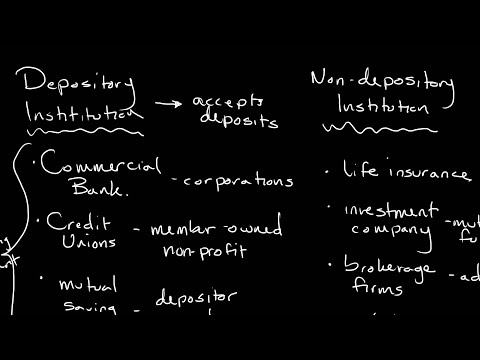 Depository
Institution → accepts
deposits
· Commercial
Bank. - corporations
· Credit
Unions - member-owned
non-profit
· mutual
saving - depositor
Non-depository
Institution
· life insurance
· investment
company - mut
fu
· brokerage - ad
firms